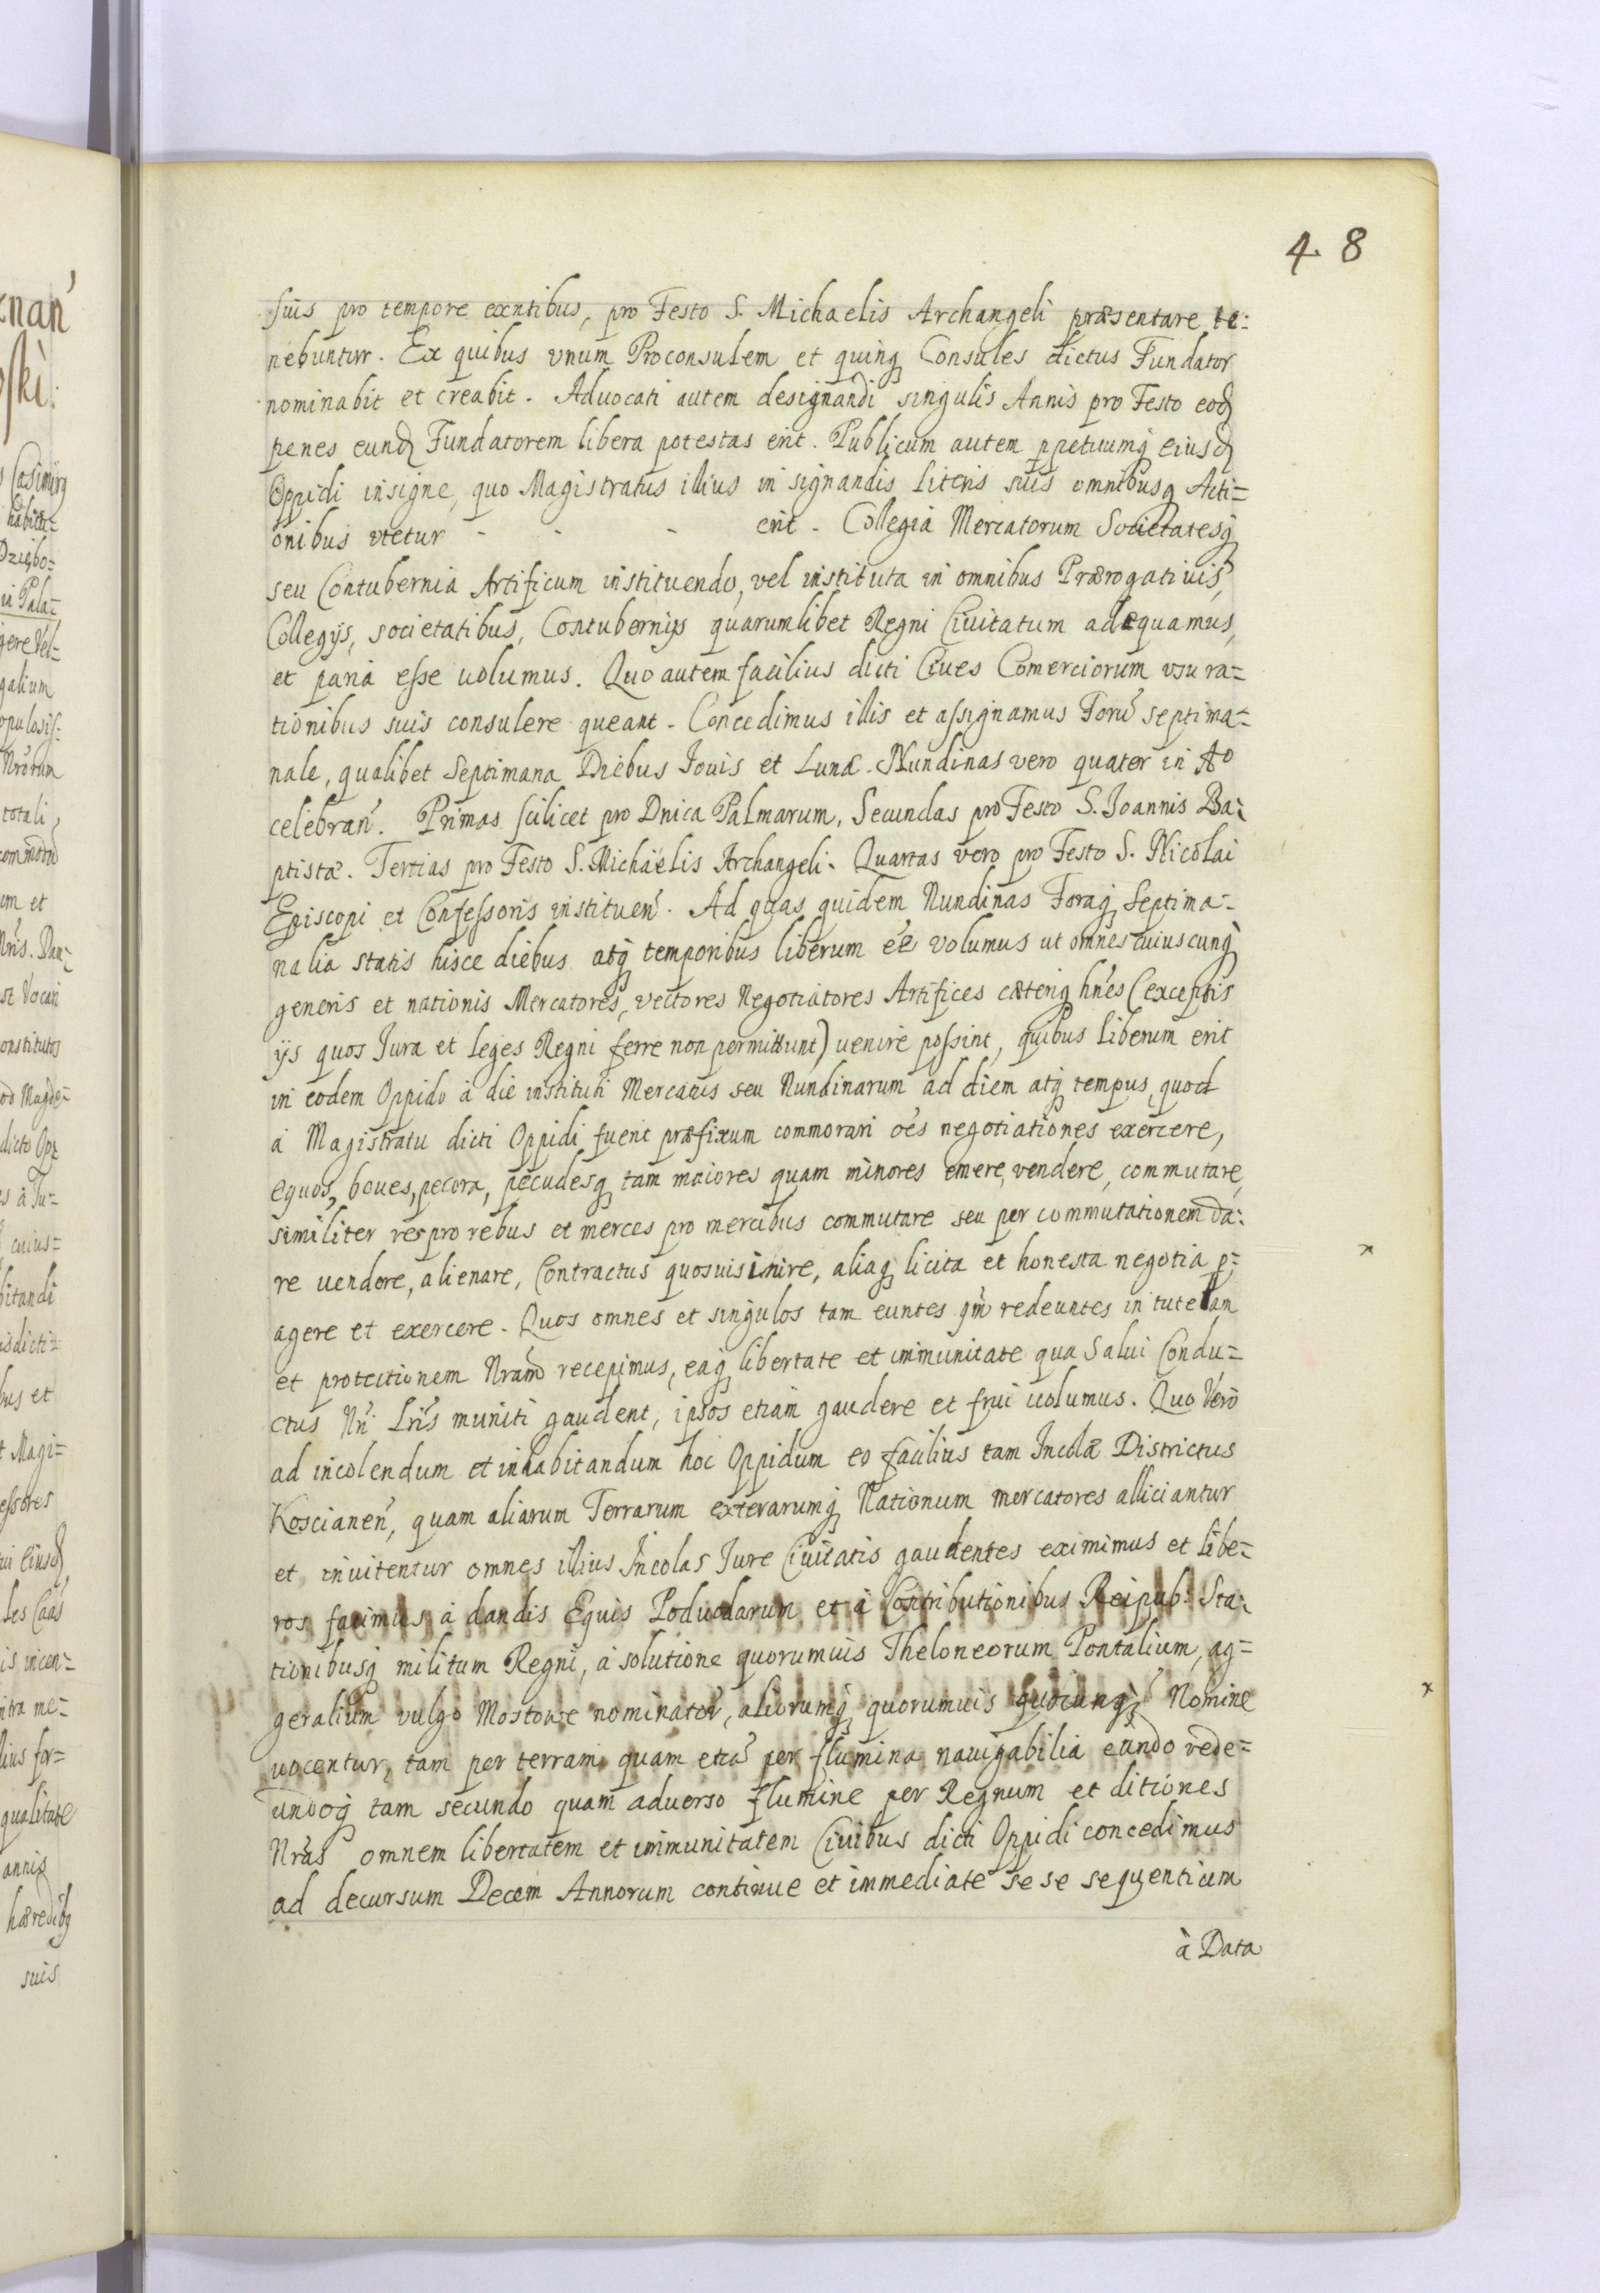 48
suis pro tempore exntibus, pro Festo S. Michaelis Archangeli præsentare te:
nebuntur. Ex quibus vnum Proconsulem et quinq Consules dictus Fundator
nominabit et creabit. Aduocati autem designandi singulis Annis pro Festo eod
penes eund Fundatorem libera potestas erit. Publicum autem ppetuumq eiusd
Oppidi insigne, quo Magistratus illius in signandis Literis suis omnibusq Acti=
onibus vtetur - - - erit. Collegia Mercatorum Societatesq
seu Contubernia Artificum instituendo, vel instituta in omnibus Prærogatiuis,
Collegijs, societatibus, Contubernijs quarumlibet Regni Ciuitatum adæquamus,
et paria esse uolumus. Quo autem facilius dicti Ciues Comerciorum vsu ra=
tionibus suis consulere queant. Concedimus illis et assignamus Forũ septima=
nale, qualibet Septimana Diebus Jouis et Lunæ. Nundinas vero quater in Ao
celebran̄. Primas scilicet pro Dnica Palmarum, Secundas pro Festo S. Joannis Ba:
ptistæ. Tertias pro Festo S. Michaelis Archangeli. Quartas vero pro Festo S. Nicolai
Episcopi et Confessoris instituen̄. Ad quas quidem Nundinas Foraq Septima=
nalia statis hisce diebus atq temporibus liberum ẽe volumus ut omnes cuiuscunq
generis et nationis Mercatores, vectores Negotiatores Artifices cæteriq hn̄es (exceptis
ijs quos Jura et Leges Regni ferre non permittunt) uenire possint, quibus liberum erit
in eodem Oppido à die instituti Mercatus seu Nundinarum ad diem atq tempus, quod
à Magistratu dicti Oppidi fuerit præfixum commorari ões negotiationes exercere,
equos, boues, pecora, pecudesq tam maiores quam minores emere, vendere, commutare,
similiter res pro rebus et merces pro mercibus commutare seu per commutationem da:
re uendere, alienare, Contractus quosuis inire, aliaq licita et honesta negotia p:
agere et exercere. Quos omnes et singulos tam euntes qm̃ redeuntes in tutelam
et protectionem Nram recepimus, eaq libertate et immunitate qua Salui Condu=
ctus Nri Lris muniti gaudent, ipsos etiam gaudere et frui uolumus. Quo Vero
ad incolendum et inhabitandum hoc Oppidum eo facilius tam Incolæ Districtus
Koscianen̄, quam aliarum Terrarum exterarumq Nationum mercatores alliciantur
et inuitentur omnes illius Incolas Jure Ciuitatis gaudentes eximimus et libe=
ros facimus à dandis Equis Poduodarum et à Contributionibus Reipub. Sta:
tionibusq militum Regni, à solutione quorumuis Theloneorum Pontalium, ag=
geralium vulgo Mostowe nominatoũ, aliorumq quorumuis quocunq Nomine
uocentur, tam per terram quam etiã per flumina nauigabilia eundo rede=
undoq tam secundo quam aduerso flumine per Regnum et ditiones
Nras omnem libertatem et immunitatem Ciuibus dicti Oppidi concedimus
ad decursum Decem Annorum continue et immediate se se sequentium
à Data